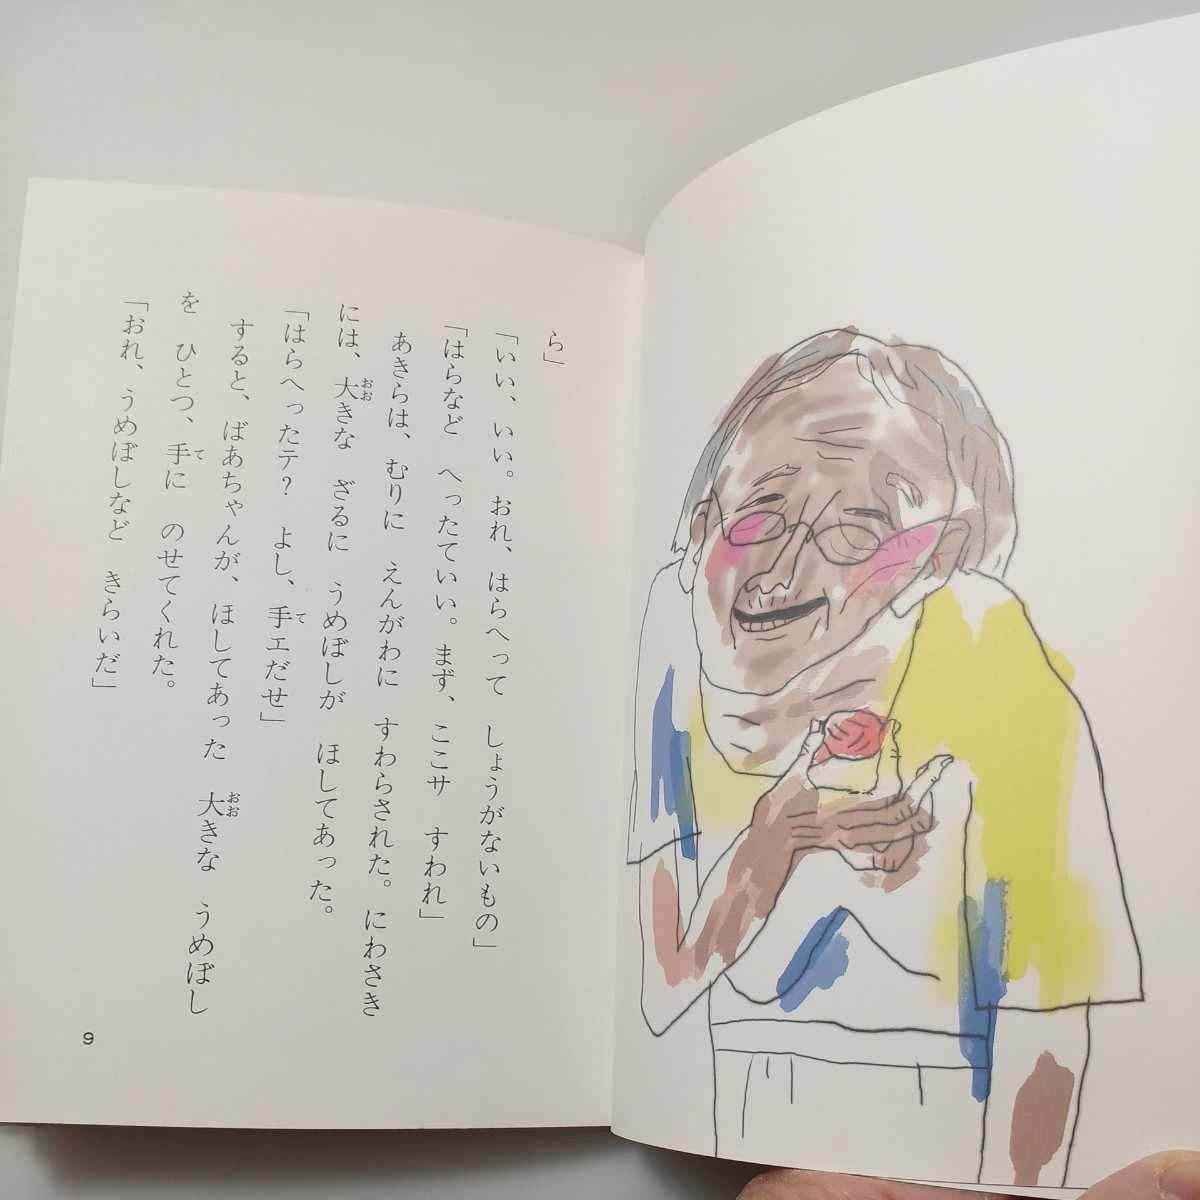 ら」
「いい、いい。おれ、はらへって しょうがないもの」
「はらなど へったていい。まず、ここサ すわれ」
あきらは、むりに えんがわに すわらされた。にわさき
には、大きな ざるに うめぼしが ほしてあった。
おお
「はらへったテ？ よし、手エだせ」
て
すると、ばあちゃんが、ほしてあった 大きな うめぼし
おお
を ひとつ、手に のせてくれた。
て
「おれ、うめぼしなど きらいだ」
9